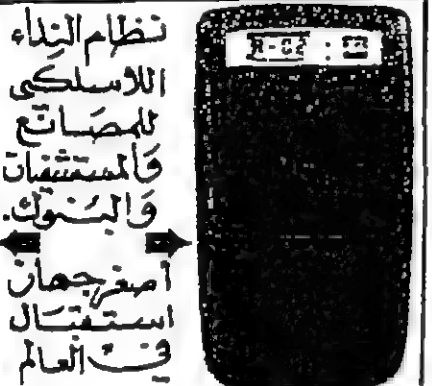 نظام النداء
اللاسلكى
للمصانع
والمستشفيات
والبنوك.
أصغر جهاز
استقبال
في العالم